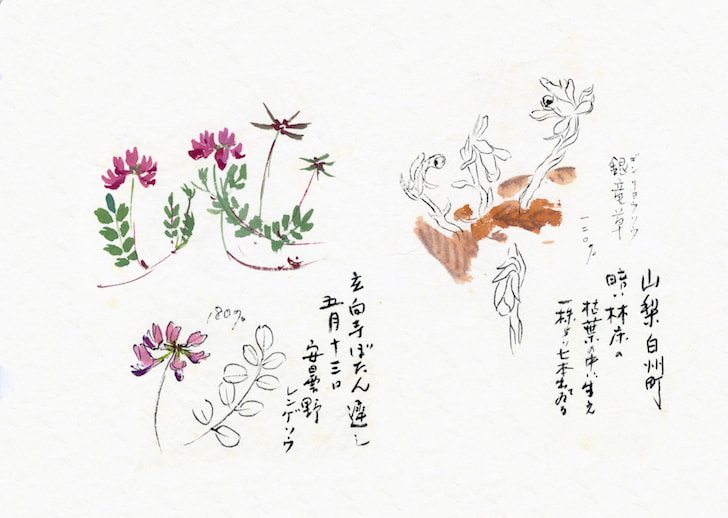 ギンリョウソウ
銀竜草
一二〇%
山梨 白州町
暗い林床の
枯葉の中に生え
一株ヨリ七本出ている
180%
玄向寺ぼたん遅し
五月十三日
安曇野
レンゲソウ